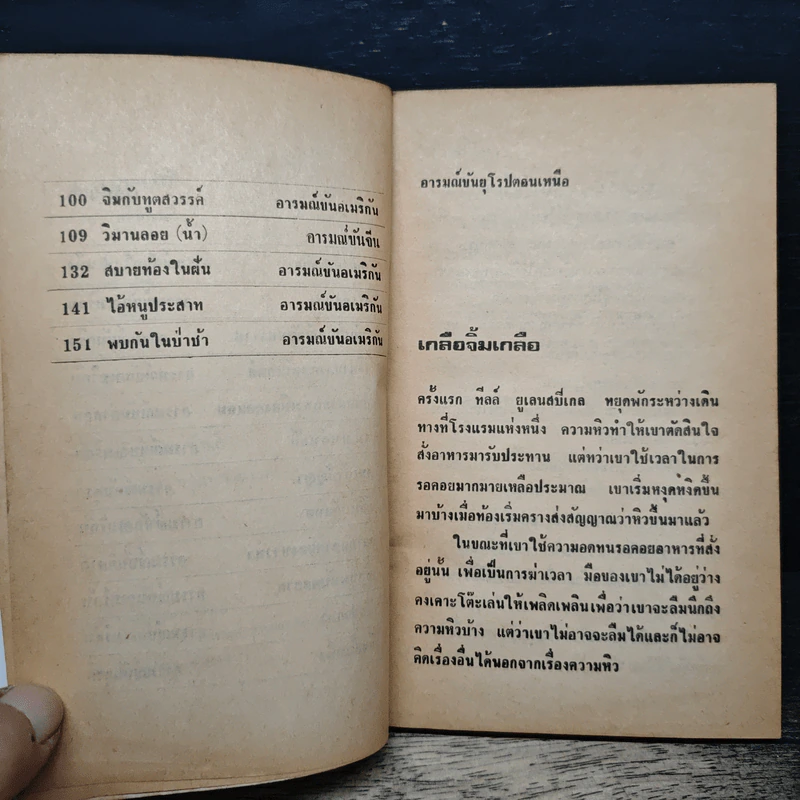 100 จิมกับทูตสวรรค์ อารมณ์ขันอเมริกัน
109 วิมานลอย (น้ำ) อารมณ์ขันจีน
132 สบายท้องในฝัน อารมณ์ขันอเมริกัน
141 ไอ้หนูประสาท อารมณ์ขันอเมริกัน
151 พบกันในป่าช้า อารมณ์ขันอเมริกัน
อารมณ์ขันยุโรปตอนเหนือ
เกลือจิ้มเกลือ
ครั้งแรก ทีลล์ ยูเลนสปีเกล หยุดพักระหว่างเดิน
ทางที่โรงแรมแห่งหนึ่ง ความหิวทำให้เขาตัดสินใจ
สั่งอาหารมารับประทาน แต่ทว่าเขาใช้เวลาในการ
รอคอยมากมายเหลือประมาณ เขาเริ่มหงุดหงิดขึ้น
มาบ้างเมื่อท้องเริ่มครางส่งสัญญาณว่าหิวขึ้นมาแล้ว
ในขณะที่เขาใช้ความอดทนรอคอยอาหารที่สั่ง
อยู่นั้น เพื่อเป็นการฆ่าเวลา มือของเขาไม่ได้อยู่ว่าง
คงเคาะโต๊ะเล่นให้เพลิดเพลินเพื่อว่าเขาจะลืมนึกถึง
ความหิวบ้าง แต่ว่าเขาไม่อาจจะลืมได้และก็ไม่อาจ
คิดเรื่องอื่นได้นอกจากเรื่องความหิว